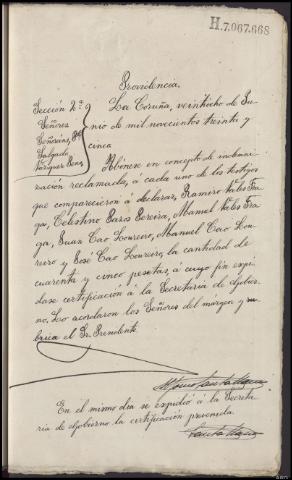 H.7.067.668
Providencia.
Sección 2ª
Señores
Señoráns, Pte
Salgado,
Vázquez Pena
La Coruña, veintiocho de Ju-
nio de mil novecientos treinta y
cinco
Abónese en concepto de indemni-
zación reclamada, á cada uno de los testigos
que comparecieron á declarar, Ramiro Veles Fra-
ga, Celestino Pazos Pereira, Manuel Veles Fra-
ga, Juan Cao Loureiro, Manuel Cao Lou-
reiro y José Cao Loureiro, la cantidad de
cuarenta y cinco pesetas, á cuyo fin expí-
dase certificación á la Secretaría de Gobier-
no. Lo acordaron los Señores del margen y ru-
brica el Sr. Presidente
En el mismo día se expidió á la Secreta-
ría de Gobierno la certificación prevenida